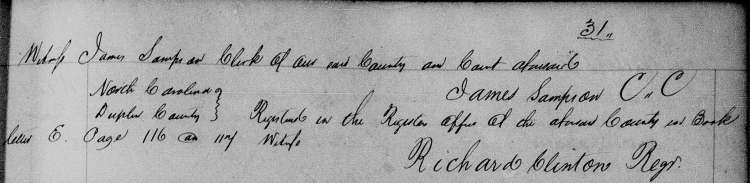 31,,
Witness James Sampson Clerk of our said County and Court aforesaid
James Sampson C,,C
North Carolina }
Duplin County } Registered in the Registers office of the aforesaid County in Book
letter E. Page 116 and 117 Witness
Richard Clinton Regr.